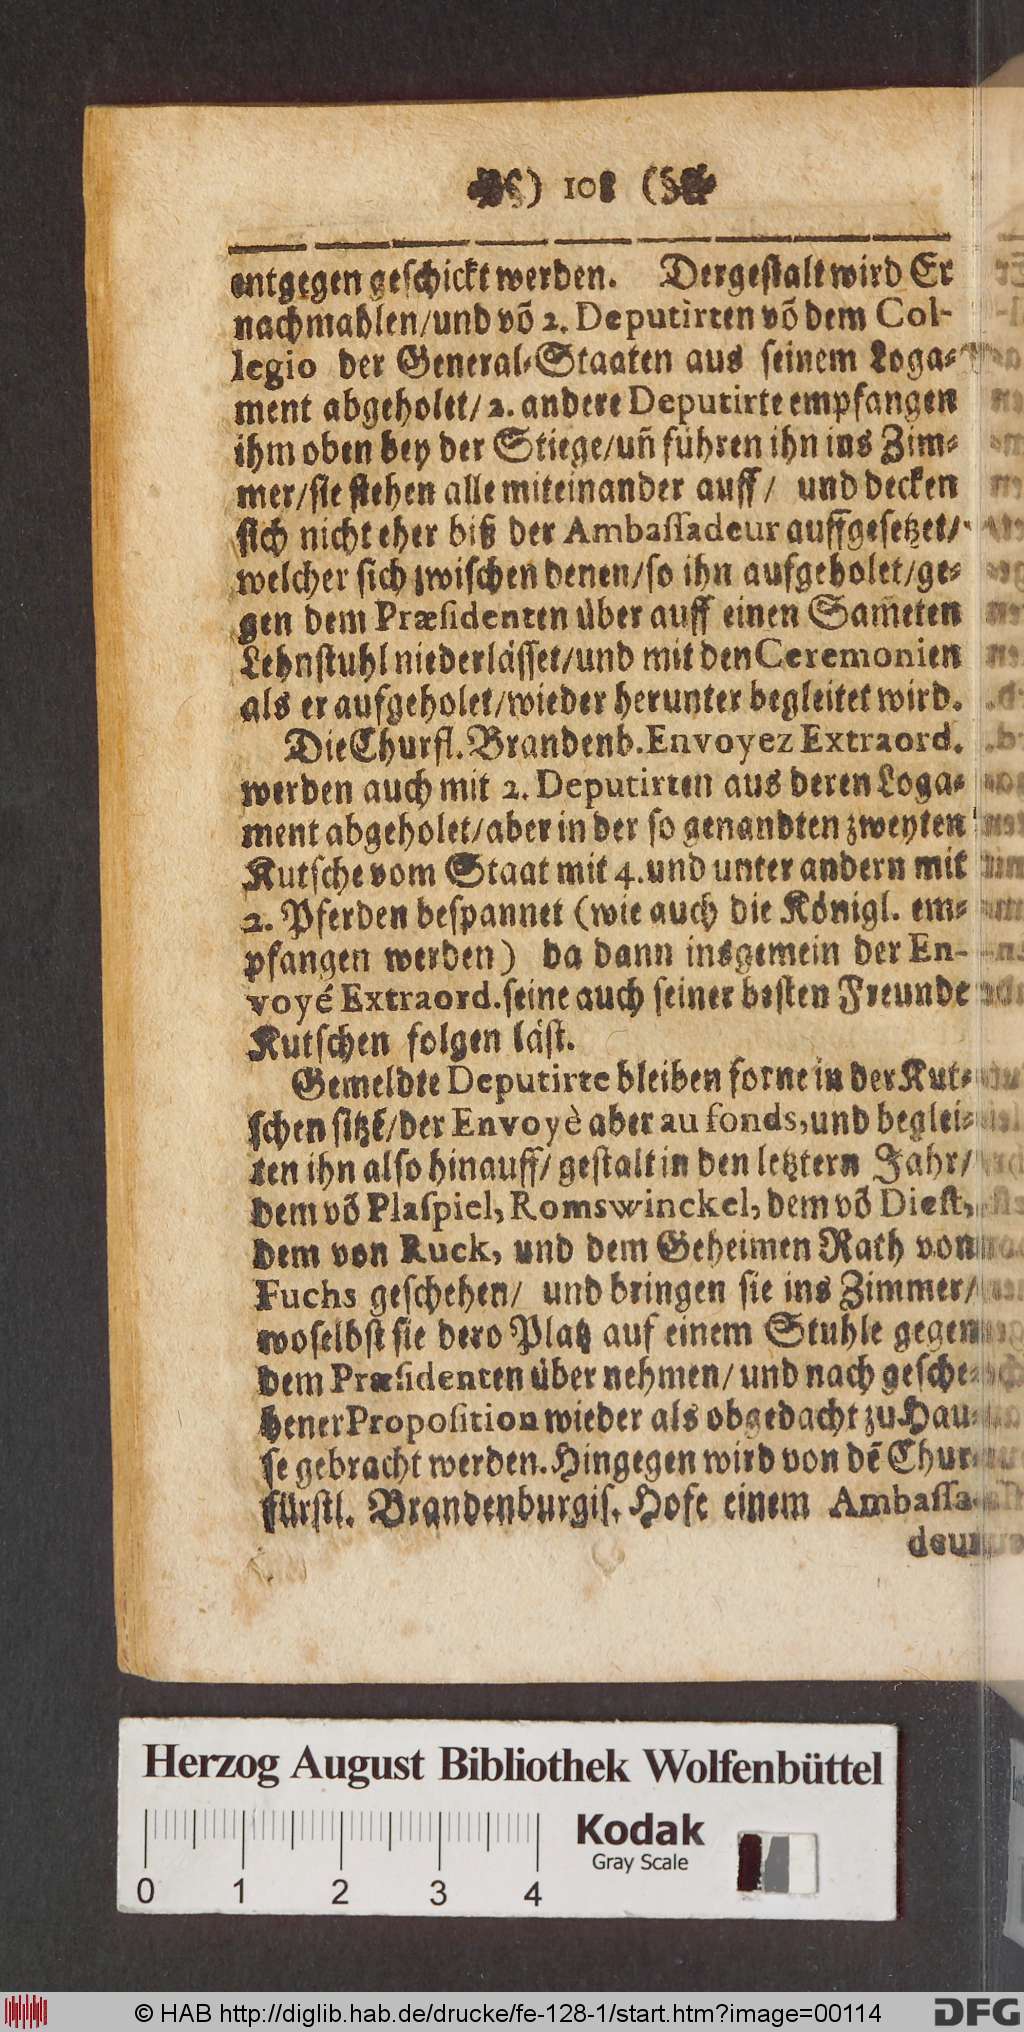 §) 108 (§
entgegen geschickt werden. Dergestalt wird Er
nachmahlen/und võ 2. Deputirten võ dem Col-
legio der General-Staaten aus seinem Loga-
ment abgeholet/ 2. andere Deputirte empfangen
ihm oben bey der Stiege/uñ führen ihn ins Zim-
mer/sie stehen alle miteinander auff/ und decken
sich nicht eher biß der Ambassadeur auffgesetzet/
welcher sich zwischen denen/so ihn aufgeholet/ge-
gen dem Præsidenten über auff einen Sameten
Lehnstuhl niederlässet/und mit den Ceremonien
als er aufgeholet/wieder herunter begleitet wird.
Die Churfl. Brandenb. Envoyez Extraord.
werden auch mit 2. Deputirten aus deren Loga-
ment abgeholet/aber in der so genandten zweyten
Kutsche vom Staat mit 4. und unter andern mit
2. Pferden bespannet (wie auch die Königl. em-
pfangen werden) da dann insgemein der En-
voyé Extraord. seine auch seiner besten Freunde
Kutschen folgen läst.
Gemeldte Deputirte bleiben forne in der Kut-
schen sitzẽ/der Envoyè aber au fonds, und beglei-
ten ihn also hinauff/ gestalt in den letztern Jahr/
dem võ Plaspiel, Romswinckel, dem võ Diest,
dem von Ruck, und dem Geheimen Rath von
Fuchs geschehen/ und bringen sie ins Zimmer/
woselbst sie dero Platz auf einem Stuhle gegen
dem Præsidenten über nehmen/ und nach gesche-
hener Proposition wieder als obgedacht zu Hau-
se gebracht werden. Hingegen wird von dẽ Chur-
fürstl. Brandenburgis. Hofe einem Ambassa-
deur
Herzog August Bibliothek Wolfenbüttel
Kodak
Gray Scale
0 1 2 3 4
© HAB http://diglib.hab.de/drucke/fe-128-1/start.htm?image=00114
DFG